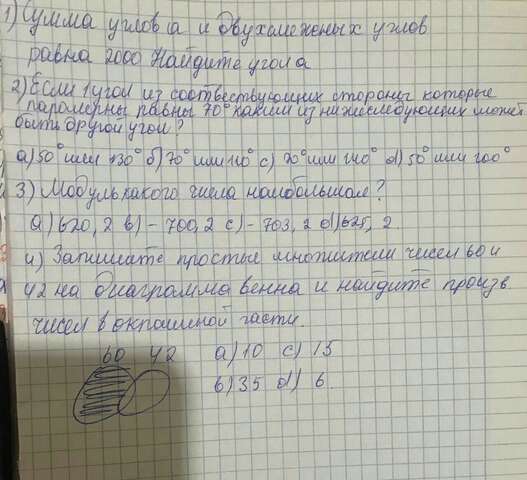 1) Сумма углов а и двухсмеженых углов
равна 2000 Найдите угол а
2) Если 1 угол из соотвествующих стороны которые
паралерны равны 70° какой из нижеследующих может
быть другой угол?
а) 50° или 130° б) 70° или 110° с) 70° или 140° d) 50° или 100°
3) Модуль какого числа наибольшая?
а) 620,2 в) -700,2 с) -703,2 d) 625,2.
4) Запишите простые множители чисел 60 и
42 на диаграмма венна и найдите произв
чисел в окрашиной части.
60 42 а) 10 с) 15
в) 35 d) 6